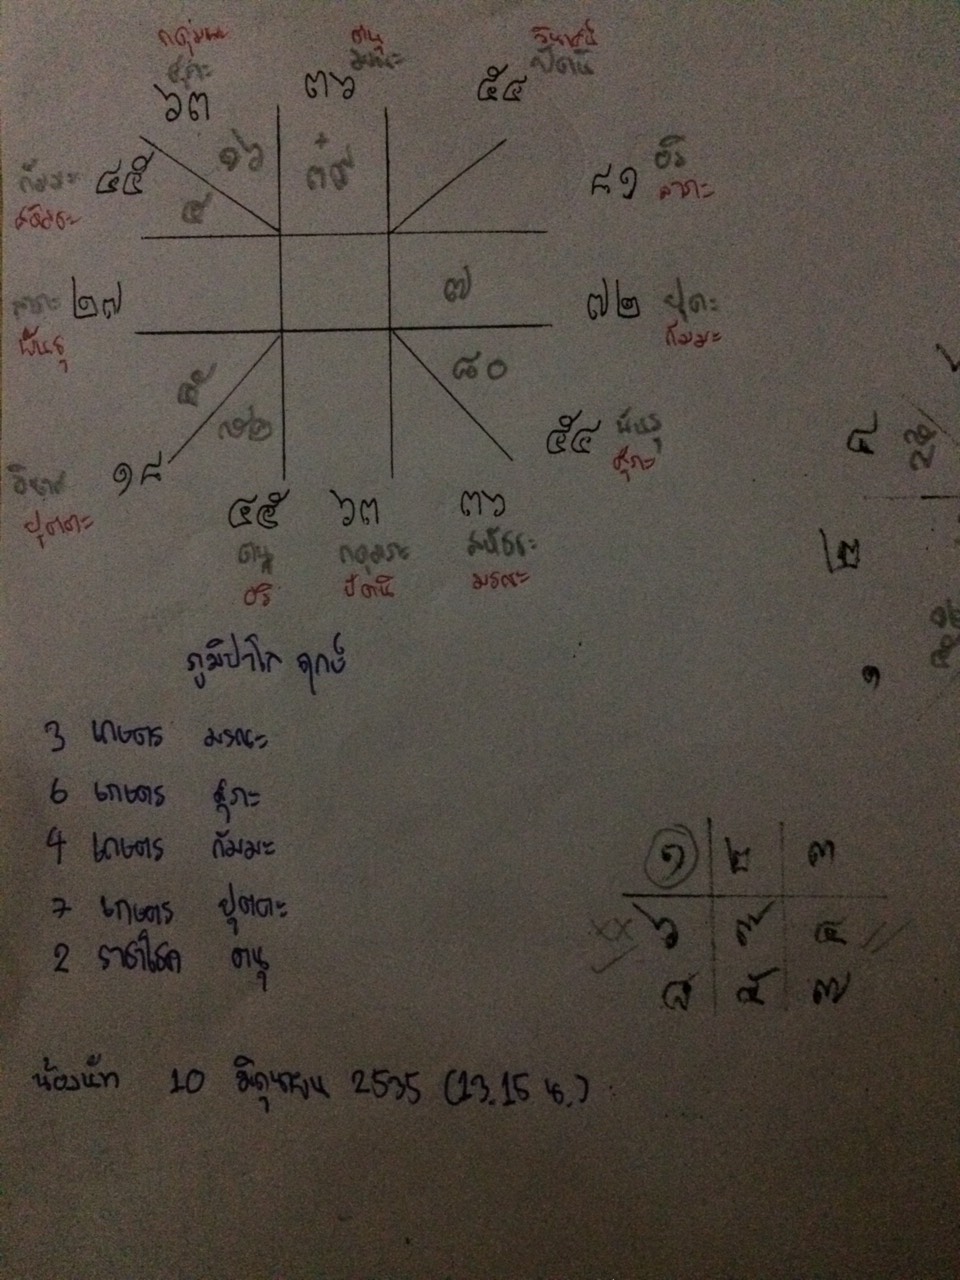 กดุมภะ ตนุ วินาศน์
ศุภะ มรณะ ปัตนิ
๖๓ ๓๖ ๕๔
๑๖ +
๔๕ ๘๑ อริ
กัมมะ ลาภะ
สหัชชะ ๕ ๓๙
๒๗ ๗ ๗๒ ปุตะ
ลาภะ กัมมะ
พันธุ
๘๐
๕๔ พันธุ
ศุภะ
๑๘
วินาศ
ปุตตะ
๔๕ ๖๓ ๓๖
ตนุ กดุมภะ สหัชชะ
อริ ปัตนิ มรณะ
ภูมิปาโล ฤกษ์
3 เกษตร มรณะ
6 เกษตร ศุภะ
4 เกษตร กัมมะ
7 เกษตร ปุตตะ
2 ราชาโชค ตนุ
๑ ๒ ๓
xx ๖ ๙ ๔ //
๘ ๕ ๗
น้องนัท 10 มิถุนายน 2535 (13.15 น.)
๔
๒
๑